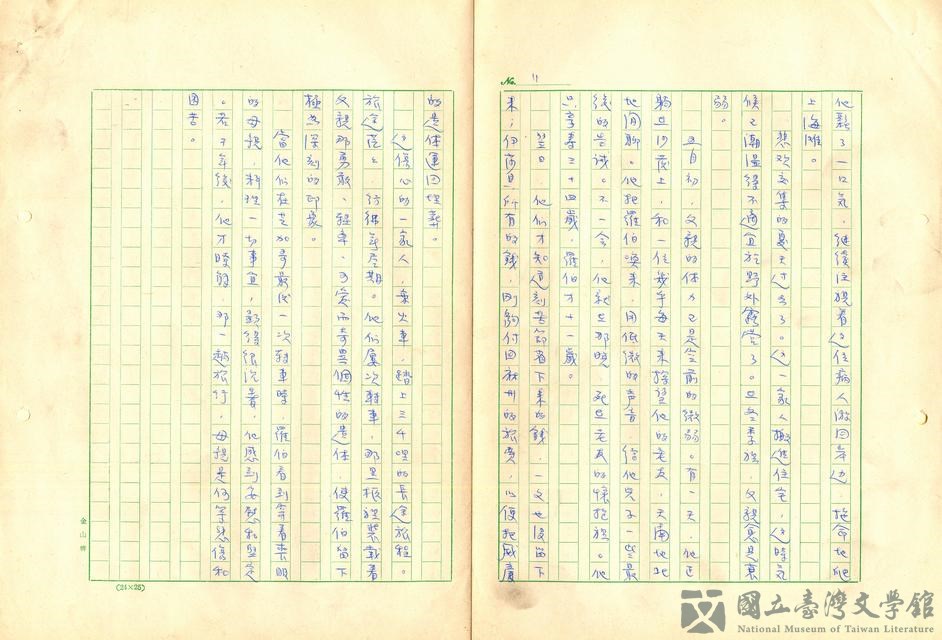 No. 11
他鬆了一口氣,繼續注視着這位病人游回岸边,拖命地爬
上海灘。
悲欢交集的夏天过去了。这一家人搬進住宅,这时气
候已潮溫得不適宜於野外露营了。旦冬季裡,父親愈見衰
弱。
五月初,父親的体力已是空前的微弱。有一天,他正
躺在沙發上,和一位幾乎每天来探望他的老友,天南地北
地闲聊。他把羅伯喚来,用低微的声音,给他兒子一些最
後的告诫。不一会,他就在那時,死在老友的懷抱裡。他
只享寿三十四歲,羅伯才十一歲。
翌日,他们才知道刻苦節省下来的錢,一文也没留下
来;伊莎貝所有的錢,剛夠付回麻州的旅費,以便把威廉
的遺体運回埋葬。
这傷心的一家人,乘火車,踏上三千哩的長途旅程。
旅途茫茫,彷彿無尽期。他们屡次轉車,那黑棺裡裝載着
父親那勇敢、轻率、可爱而奇異個性的遺体,使羅伯留下
極為深刻的印象。
當他们在芝加哥最后一次轉車時,羅伯看到穿着喪服
的母親,料理一切事宜,顯得很沉着,他感到安慰和堅定
。若干年後,他才瞭解,那一趟旅行,母親是何等悲傷和
困苦。
金山牌
(24×25)
國立臺灣文學館
National Museum of Taiwan Literature